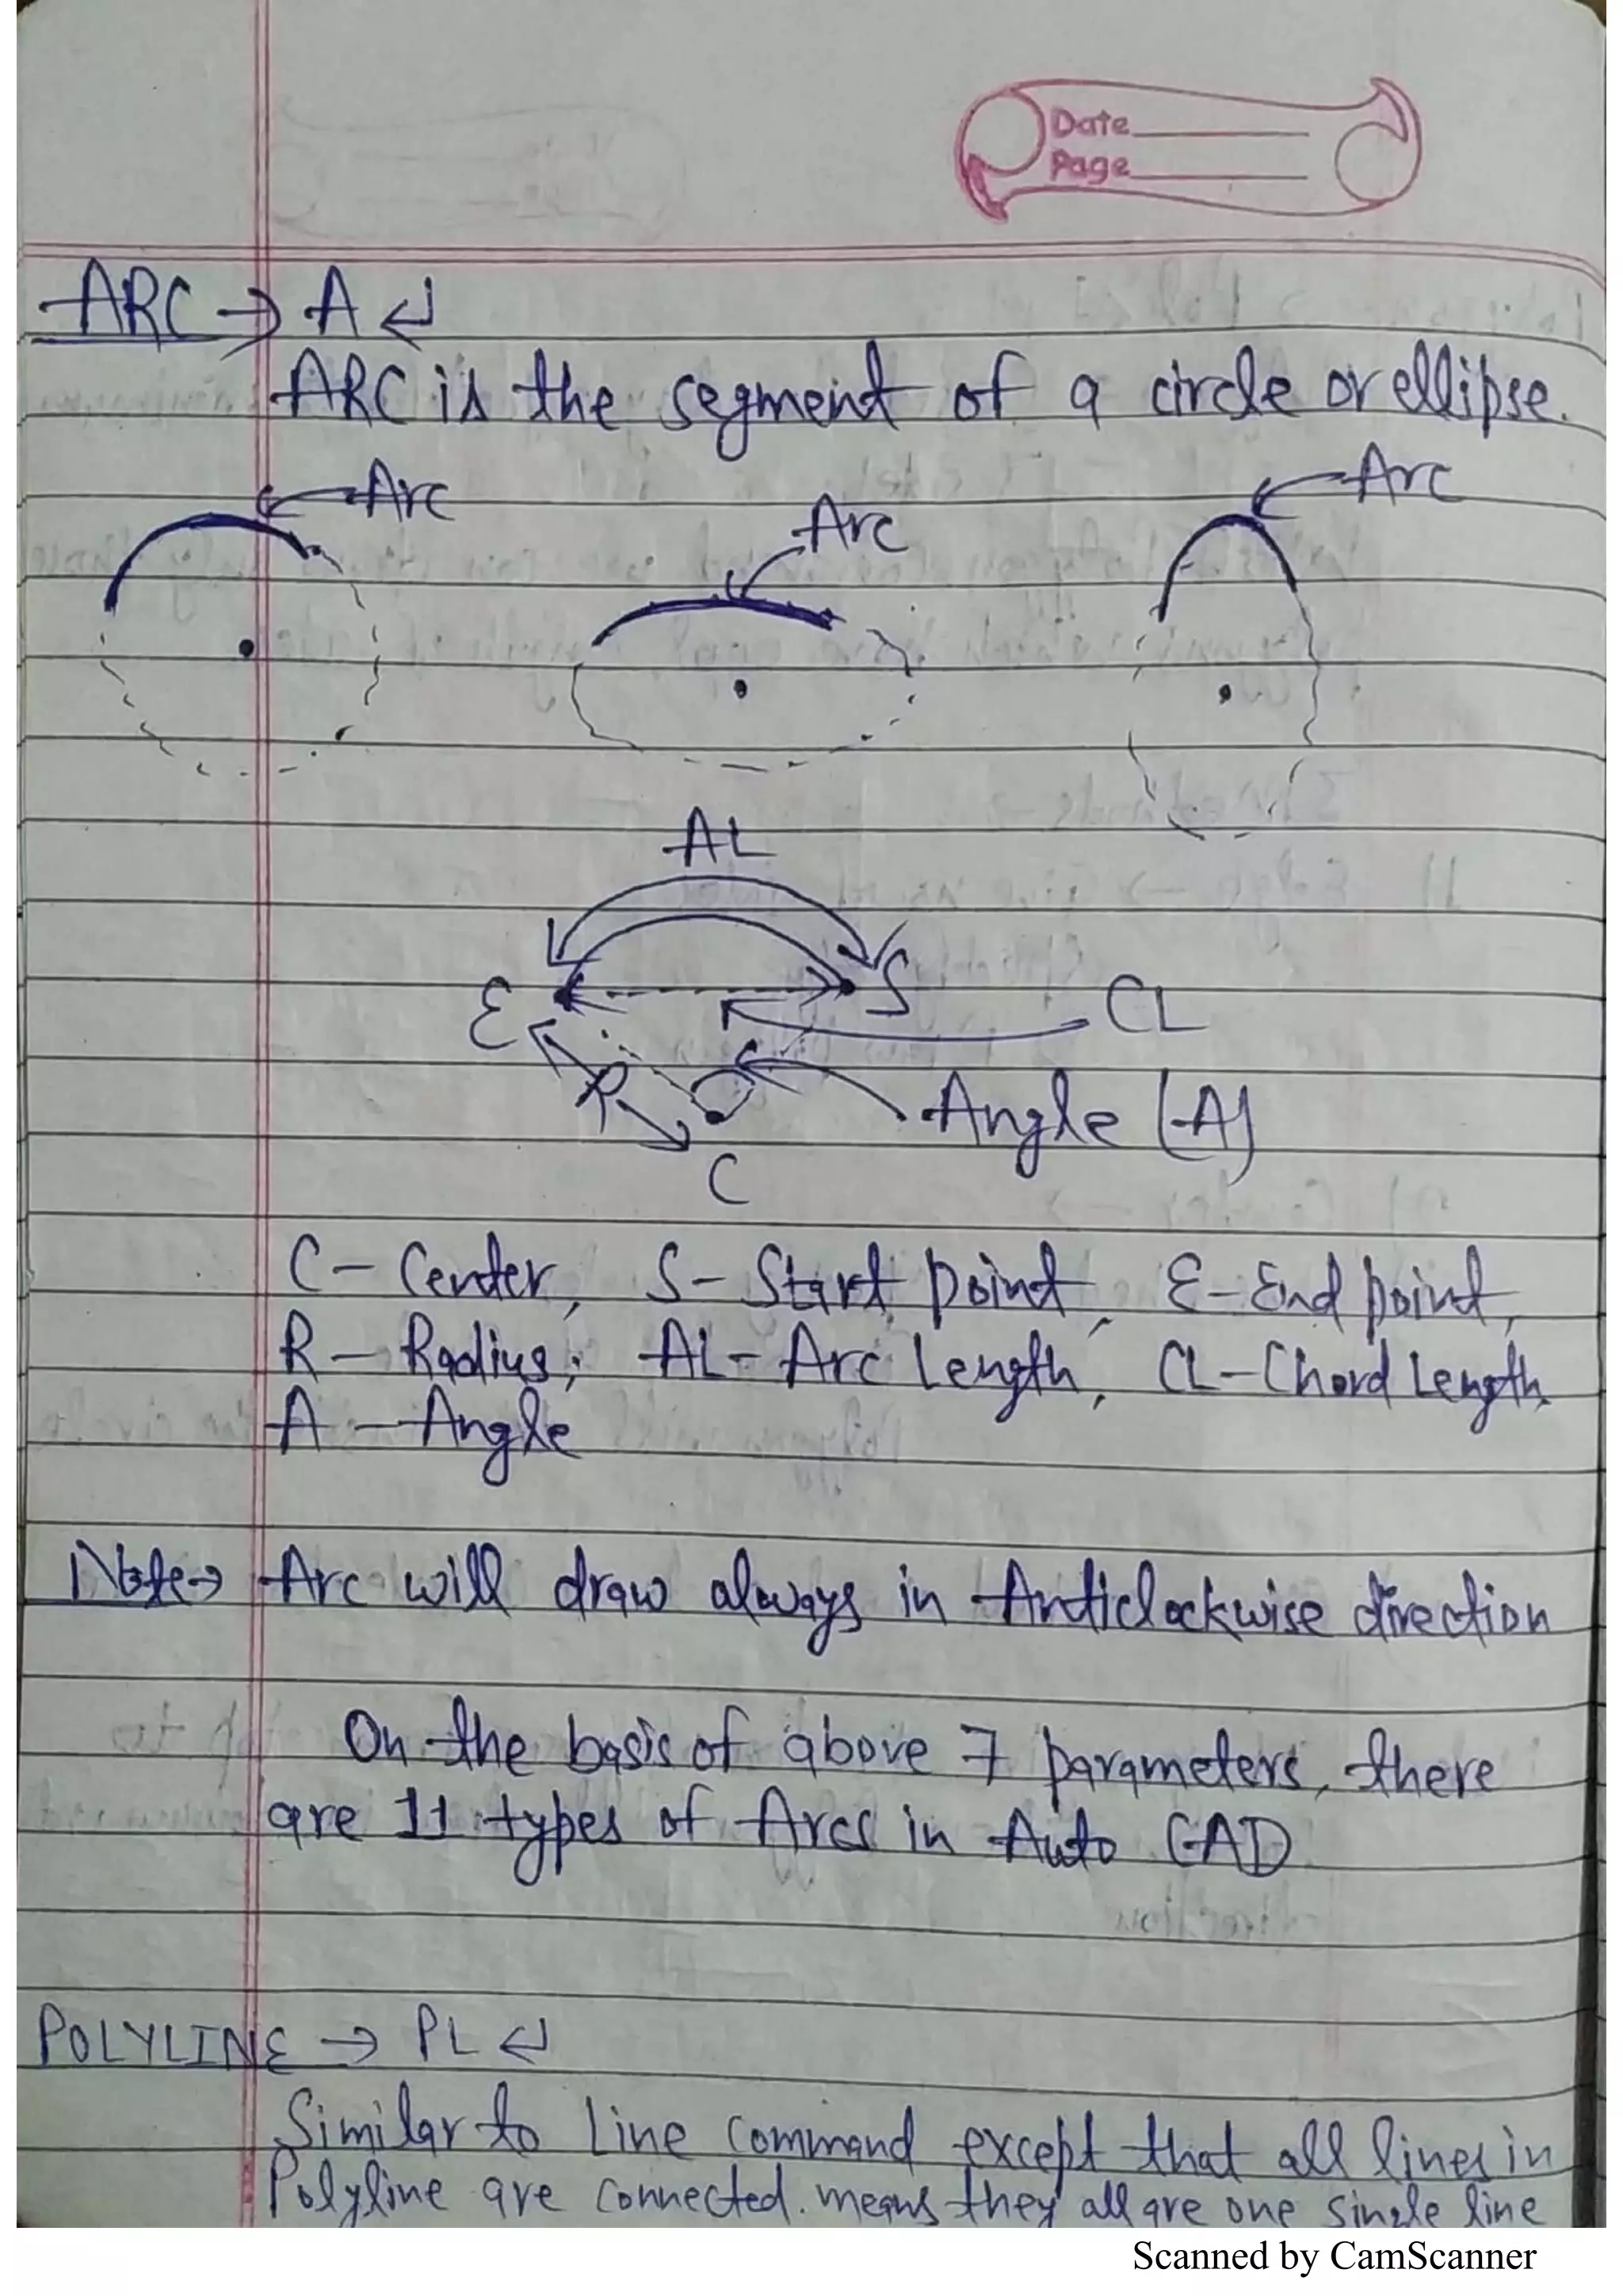 Date
Page
ARC → A ↵
ARC is the segment of a circle or ellipse.
Arc
Arc
Arc
AL
E
S
CL
R
Angle (A)
C
C – Center, S – Start point, E – End point,
R – Radius, AL – Arc Length, CL – Chord Length,
A – Angle
Note → Arc will draw always in Anticlockwise direction
On the basis of above 7 parameters, there
are 11 types of Arcs in Auto CAD
POLYLINE → PL ↵
Similar to Line command except that all lines in
Polyline are connected. means they all are one single line
Scanned by CamScanner